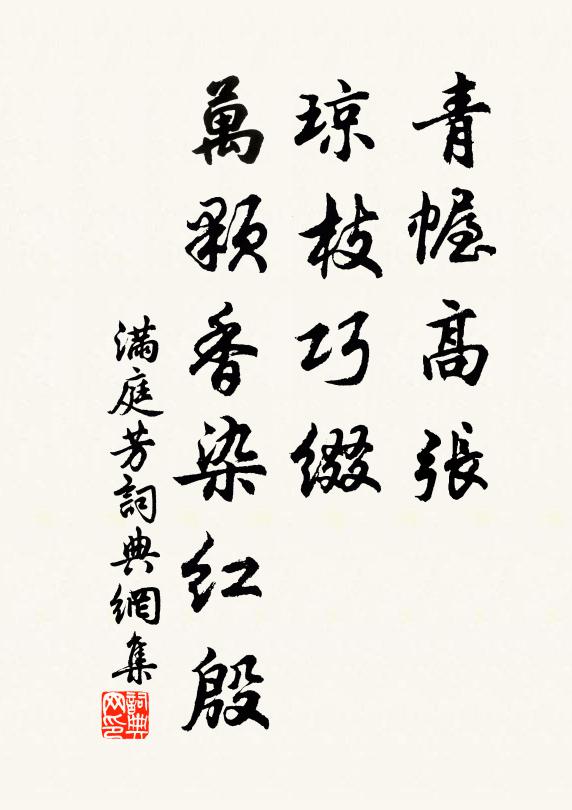 青幄高張
瓊枝巧綴
萬顆香染红殷
滿庭芳詞典網集
詞典网印